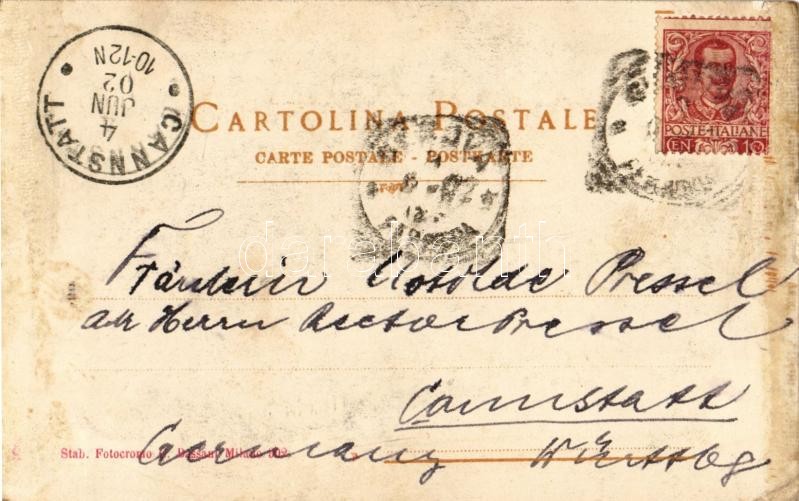 CANNSTATT
4
JUN
02
10-12N
POSTE ITALIANE
CEN 10
CARTOLINA POSTALE
CARTE POSTALE - POSTKARTE
darabanth
Fräulein Isolde Pressel
adr Herrn Rector Pressel
Cannstatt
Germany Württbg
Stab. Fotocromo Bassani Milano 302